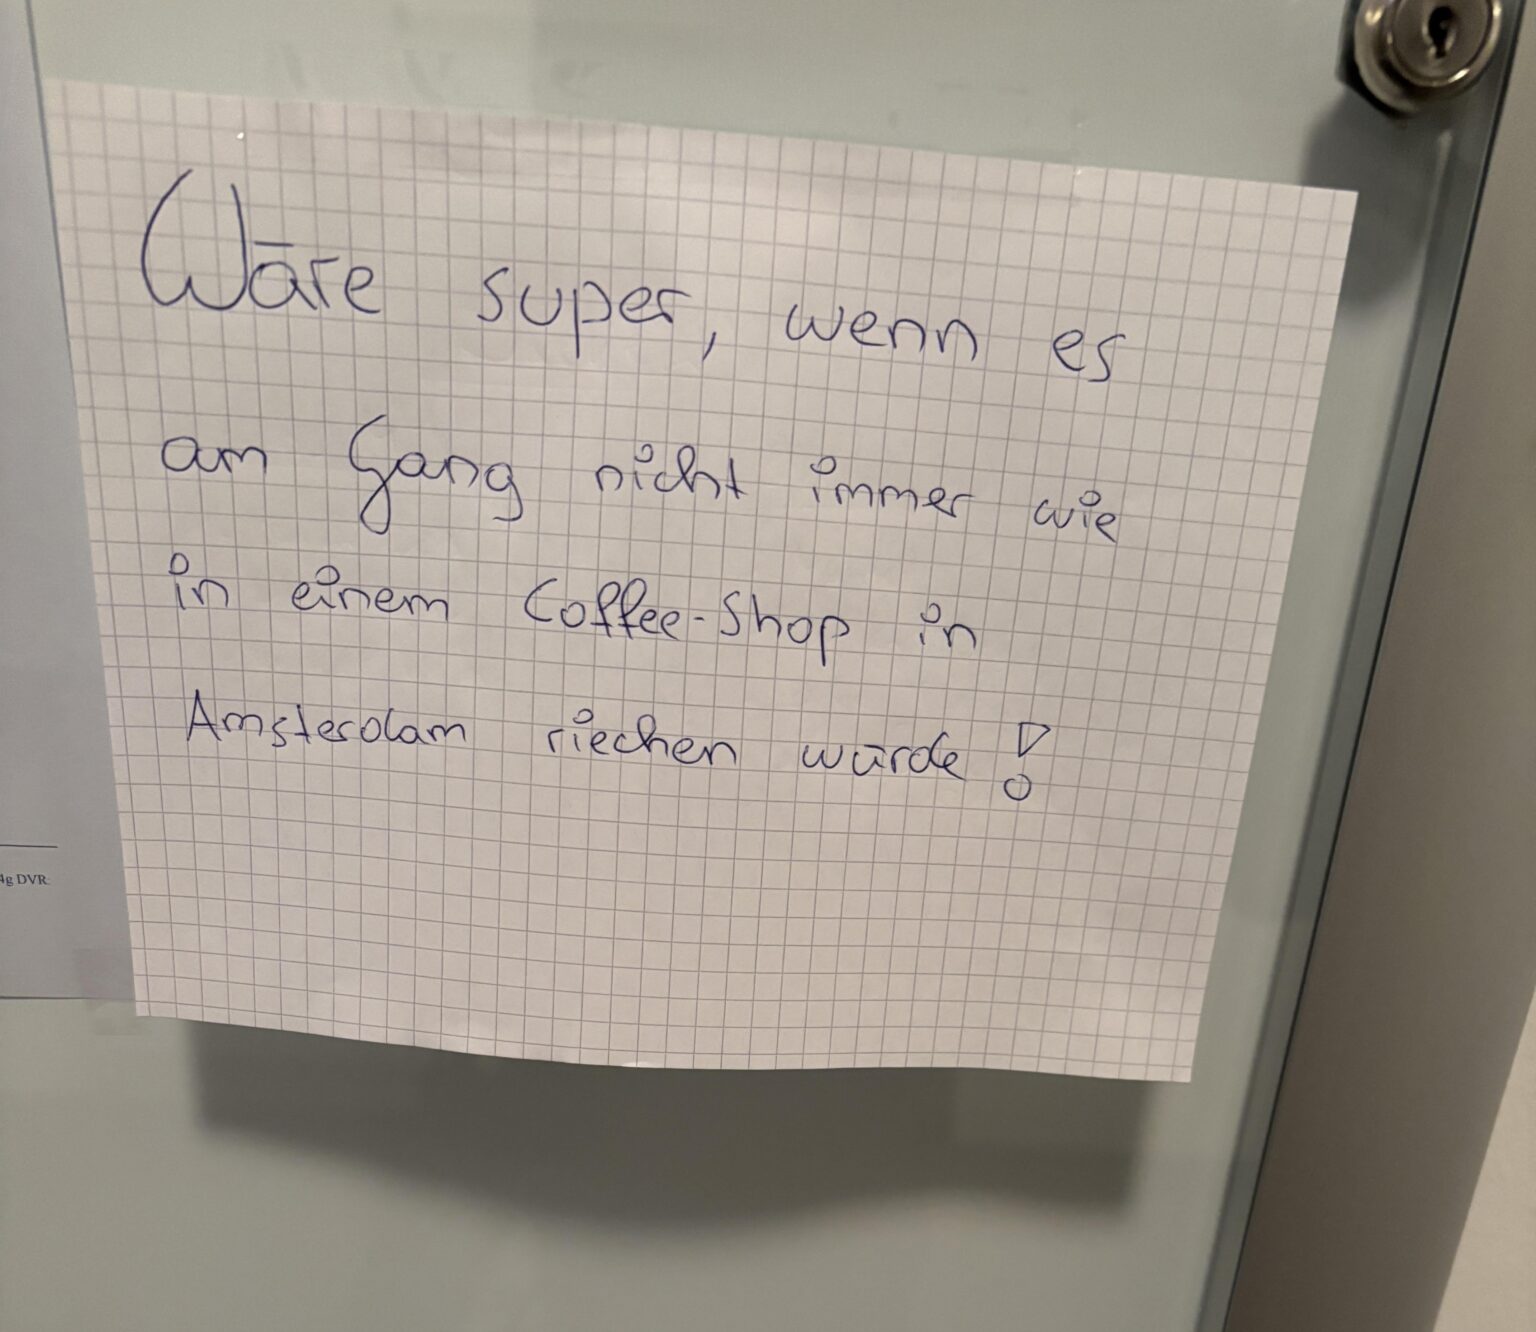 Wäre super, wenn es
am Gang nicht immer wie
in einem Coffee-Shop in
Amsterdam riechen würde!
4g DVR